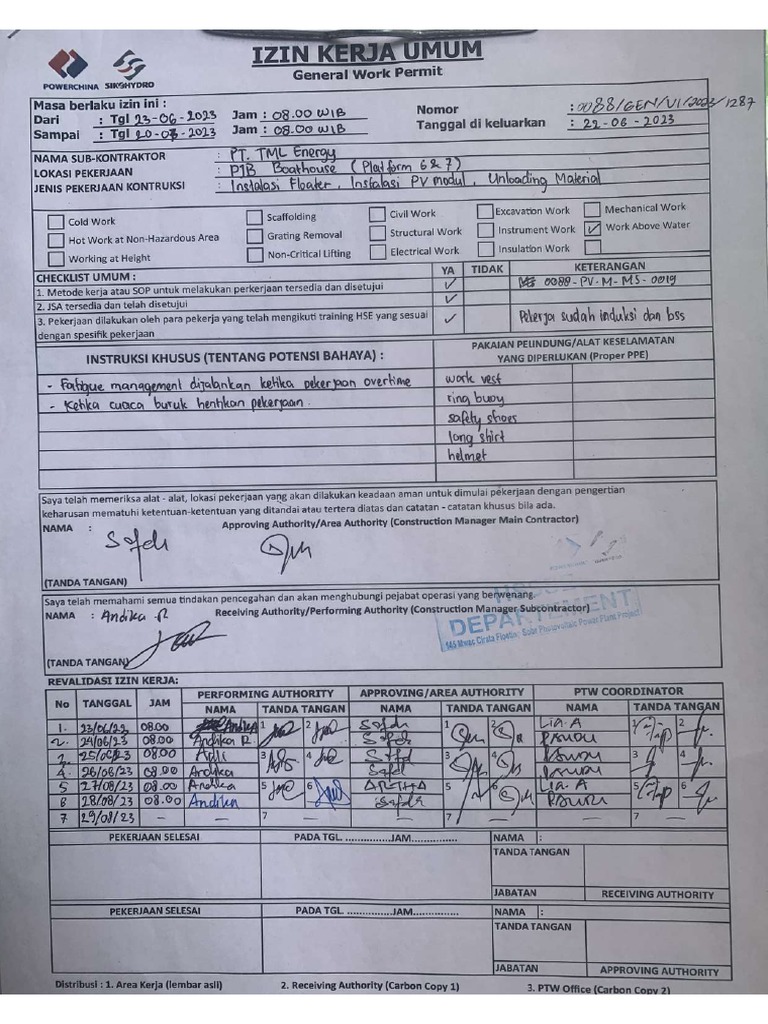 IZIN KERJA UMUM
General Work Permit
POWERCHINA SINOHYDRO
Masa berlaku izin ini :
Dari : Tgl 23-06-2023 Jam : 08.00 WIB
Sampai : Tgl 20-07-2023 Jam : 08.00 WIB
Nomor : 0088/GEN/VI/2023/1287
Tanggal di keluarkan : 22-06-2023
NAMA SUB-KONTRAKTOR : PT. TML Energy
LOKASI PEKERJAAN : PJB Boathouse (Platform 6 & 7)
JENIS PEKERJAAN KONTRUKSI : Instalasi Floater, Instalasi PV modul, Unloading Material
Cold Work Scaffolding Civil Work Excavation Work Mechanical Work
Hot Work at Non-Hazardous Area Grating Removal Structural Work Instrument Work ✓ Work Above Water
Working at Height Non-Critical Lifting Electrical Work Insulation Work
CHECKLIST UMUM : YA TIDAK KETERANGAN
1. Metode kerja atau SOP untuk melakukan perkerjaan tersedia dan disetujui ✓ 0088-PV-M-MS-0019
2. JSA tersedia dan telah disetujui ✓
3. Pekerjaan dilakukan oleh para pekerja yang telah mengikuti training HSE yang sesuai dengan spesifik pekerjaan ✓ Pekerja sudah induksi dan bss
INSTRUKSI KHUSUS (TENTANG POTENSI BAHAYA) :
PAKAIAN PELINDUNG/ALAT KESELAMATAN
YANG DIPERLUKAN (Proper PPE)
- Fatigue management dijalankan ketika pekerjaan overtime
- Ketika cuaca buruk hentikan pekerjaan.
work vest
ring buoy
safety shoes
long shirt
helmet
Saya telah memeriksa alat - alat, lokasi pekerjaan yang akan dilakukan keadaan aman untuk dimulai pekerjaan dengan pengertian
keharusan mematuhi ketentuan-ketentuan yang ditandai atau tertera diatas dan catatan - catatan khusus bila ada.
NAMA : Approving Authority/Area Authority (Construction Manager Main Contractor)
(TANDA TANGAN)
Saya telah memahami semua tindakan pencegahan dan akan menghubungi pejabat operasi yang berwenang.
NAMA : Andika R Receiving Authority/Performing Authority (Construction Manager Subcontractor)
DEPARTEMENT
145 Mwac Cirata Floating Solar Photovoltaic Power Plant Project
(TANDA TANGAN)
REVALIDASI IZIN KERJA:
No TANGGAL JAM PERFORMING AUTHORITY APPROVING/AREA AUTHORITY PTW COORDINATOR
NAMA TANDA TANGAN NAMA TANDA TANGAN NAMA TANDA TANGAN
1. 23/06/23 08.00 Andika 1 2 1 2 Lia. A 1 2
2. 24/06/23 08.00 Andika R.
3. 25/06/23 08.00 3 4 3 4 3 4
4. 26/06/23 08.00 Andika
5 27/08/23 08.00 Andika 5 6 5 6 Lia. A 5 6
6 28/08/23 08.00 Andika
7 29/08/23 – – 7 – – 7 – – 7 –
PEKERJAAN SELESAI PADA TGL. ...............JAM............... NAMA :
TANDA TANGAN
JABATAN RECEIVING AUTHORITY
PEKERJAAN SELESAI PADA TGL. ...............JAM............... NAMA :
TANDA TANGAN
JABATAN APPROVING AUTHORITY
Distribusi : 1. Area Kerja (lembar asli) 2. Receiving Authority (Carbon Copy 1) 3. PTW Office (Carbon Copy 2)